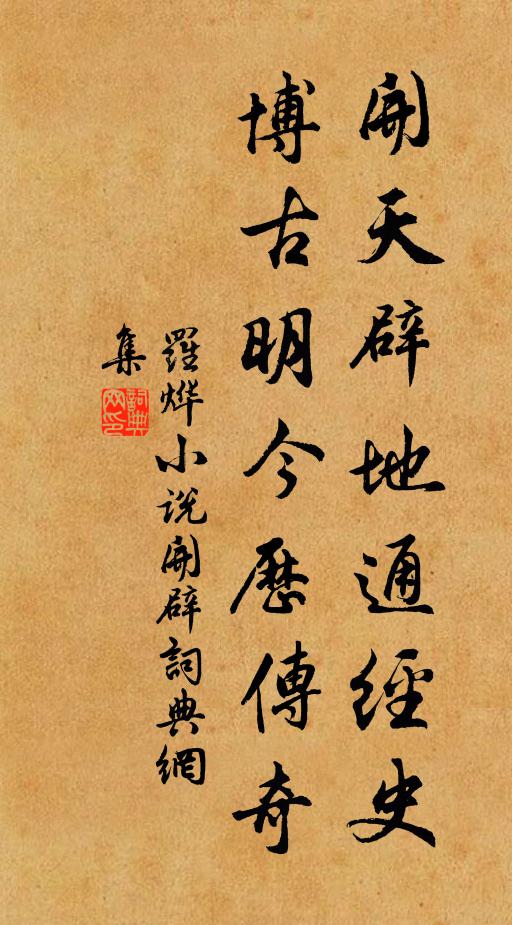 開天辟地通經史
博古明今歷傳奇
羅燁小說開辟詞典網
集
詞典
网印